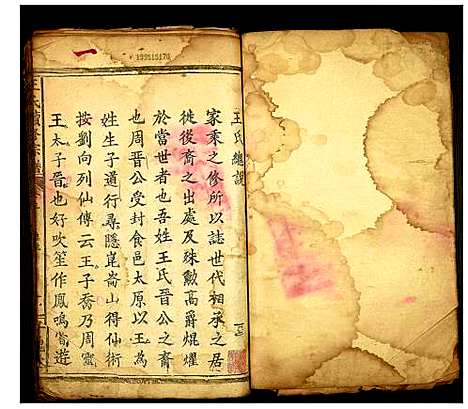 王氏總說
家乘之修所以誌世代相承之居
徙後裔之出處及殊勲高爵焜燿
於當世者也吾姓王氏晉公之裔
也周晉公受封食邑太原以王為
姓生子道行尋隱崑崙山得仙術
按劉向列仙傳云王子喬乃周靈
王太子晉也好吹笙作鳳鳴嘗遊
一
199515170